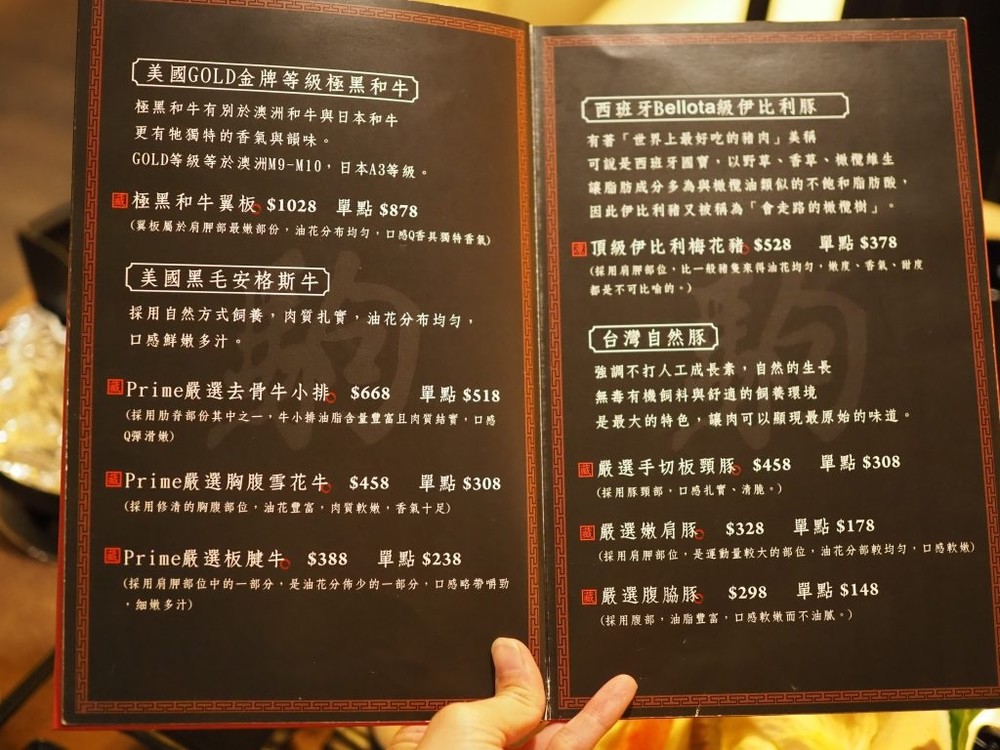 美國GOLD金牌等級極黑和牛
極黑和牛有別於澳洲和牛與日本和牛
更有牠獨特的香氣與韻味。
GOLD等級等於澳洲M9-M10，日本A3等級。
藏 極黑和牛翼板 $1028 單點 $878
(翼板屬於肩胛部最嫩部份，油花分布均勻，口感Q香具獨特香氣)
美國黑毛安格斯牛
採用自然方式飼養，肉質扎實，油花分布均勻，
口感鮮嫩多汁。
藏 Prime嚴選去骨牛小排 $668 單點 $518
(採用肋脊部份其中之一，牛小排油脂含量豐富且肉質結實，口感
Q彈滑嫩)
藏 Prime嚴選胸腹雪花牛 $458 單點 $308
(採用修清的胸腹部位，油花豐富，肉質軟嫩，香氣十足)
藏 Prime嚴選板腱牛 $388 單點 $238
(採用肩胛部位中的一部分，是油花分佈少的一部分，口感略帶嚼勁
，細嫩多汁)
西班牙Bellota級伊比利豚
有著「世界上最好吃的豬肉」美稱
可說是西班牙國寶，以野草、香草、橄欖維生
讓脂肪成分多為與橄欖油類似的不飽和脂肪酸，
因此伊比利豬又被稱為「會走路的橄欖樹」。
藏 頂級伊比利梅花豬 $528 單點 $378
(採用肩胛部位，比一般豬隻來得油花均勻，嫩度、香氣、甜度
都是不可比喻的。)
台灣自然豚
強調不打人工成長素，自然的生長
無毒有機飼料與舒適的飼養環境
是最大的特色，讓肉可以顯現最原始的味道。
藏 嚴選手切板頸豚 $458 單點 $308
(採用豚頸部，口感扎實、清脆。)
藏 嚴選嫩肩豚 $328 單點 $178
(採用肩胛部位，是運動量較大的部位，油花分部較均勻，口感軟嫩)
藏 嚴選腹脇豚 $298 單點 $148
(採用腹部，油脂豐富，口感軟嫩而不油膩。)